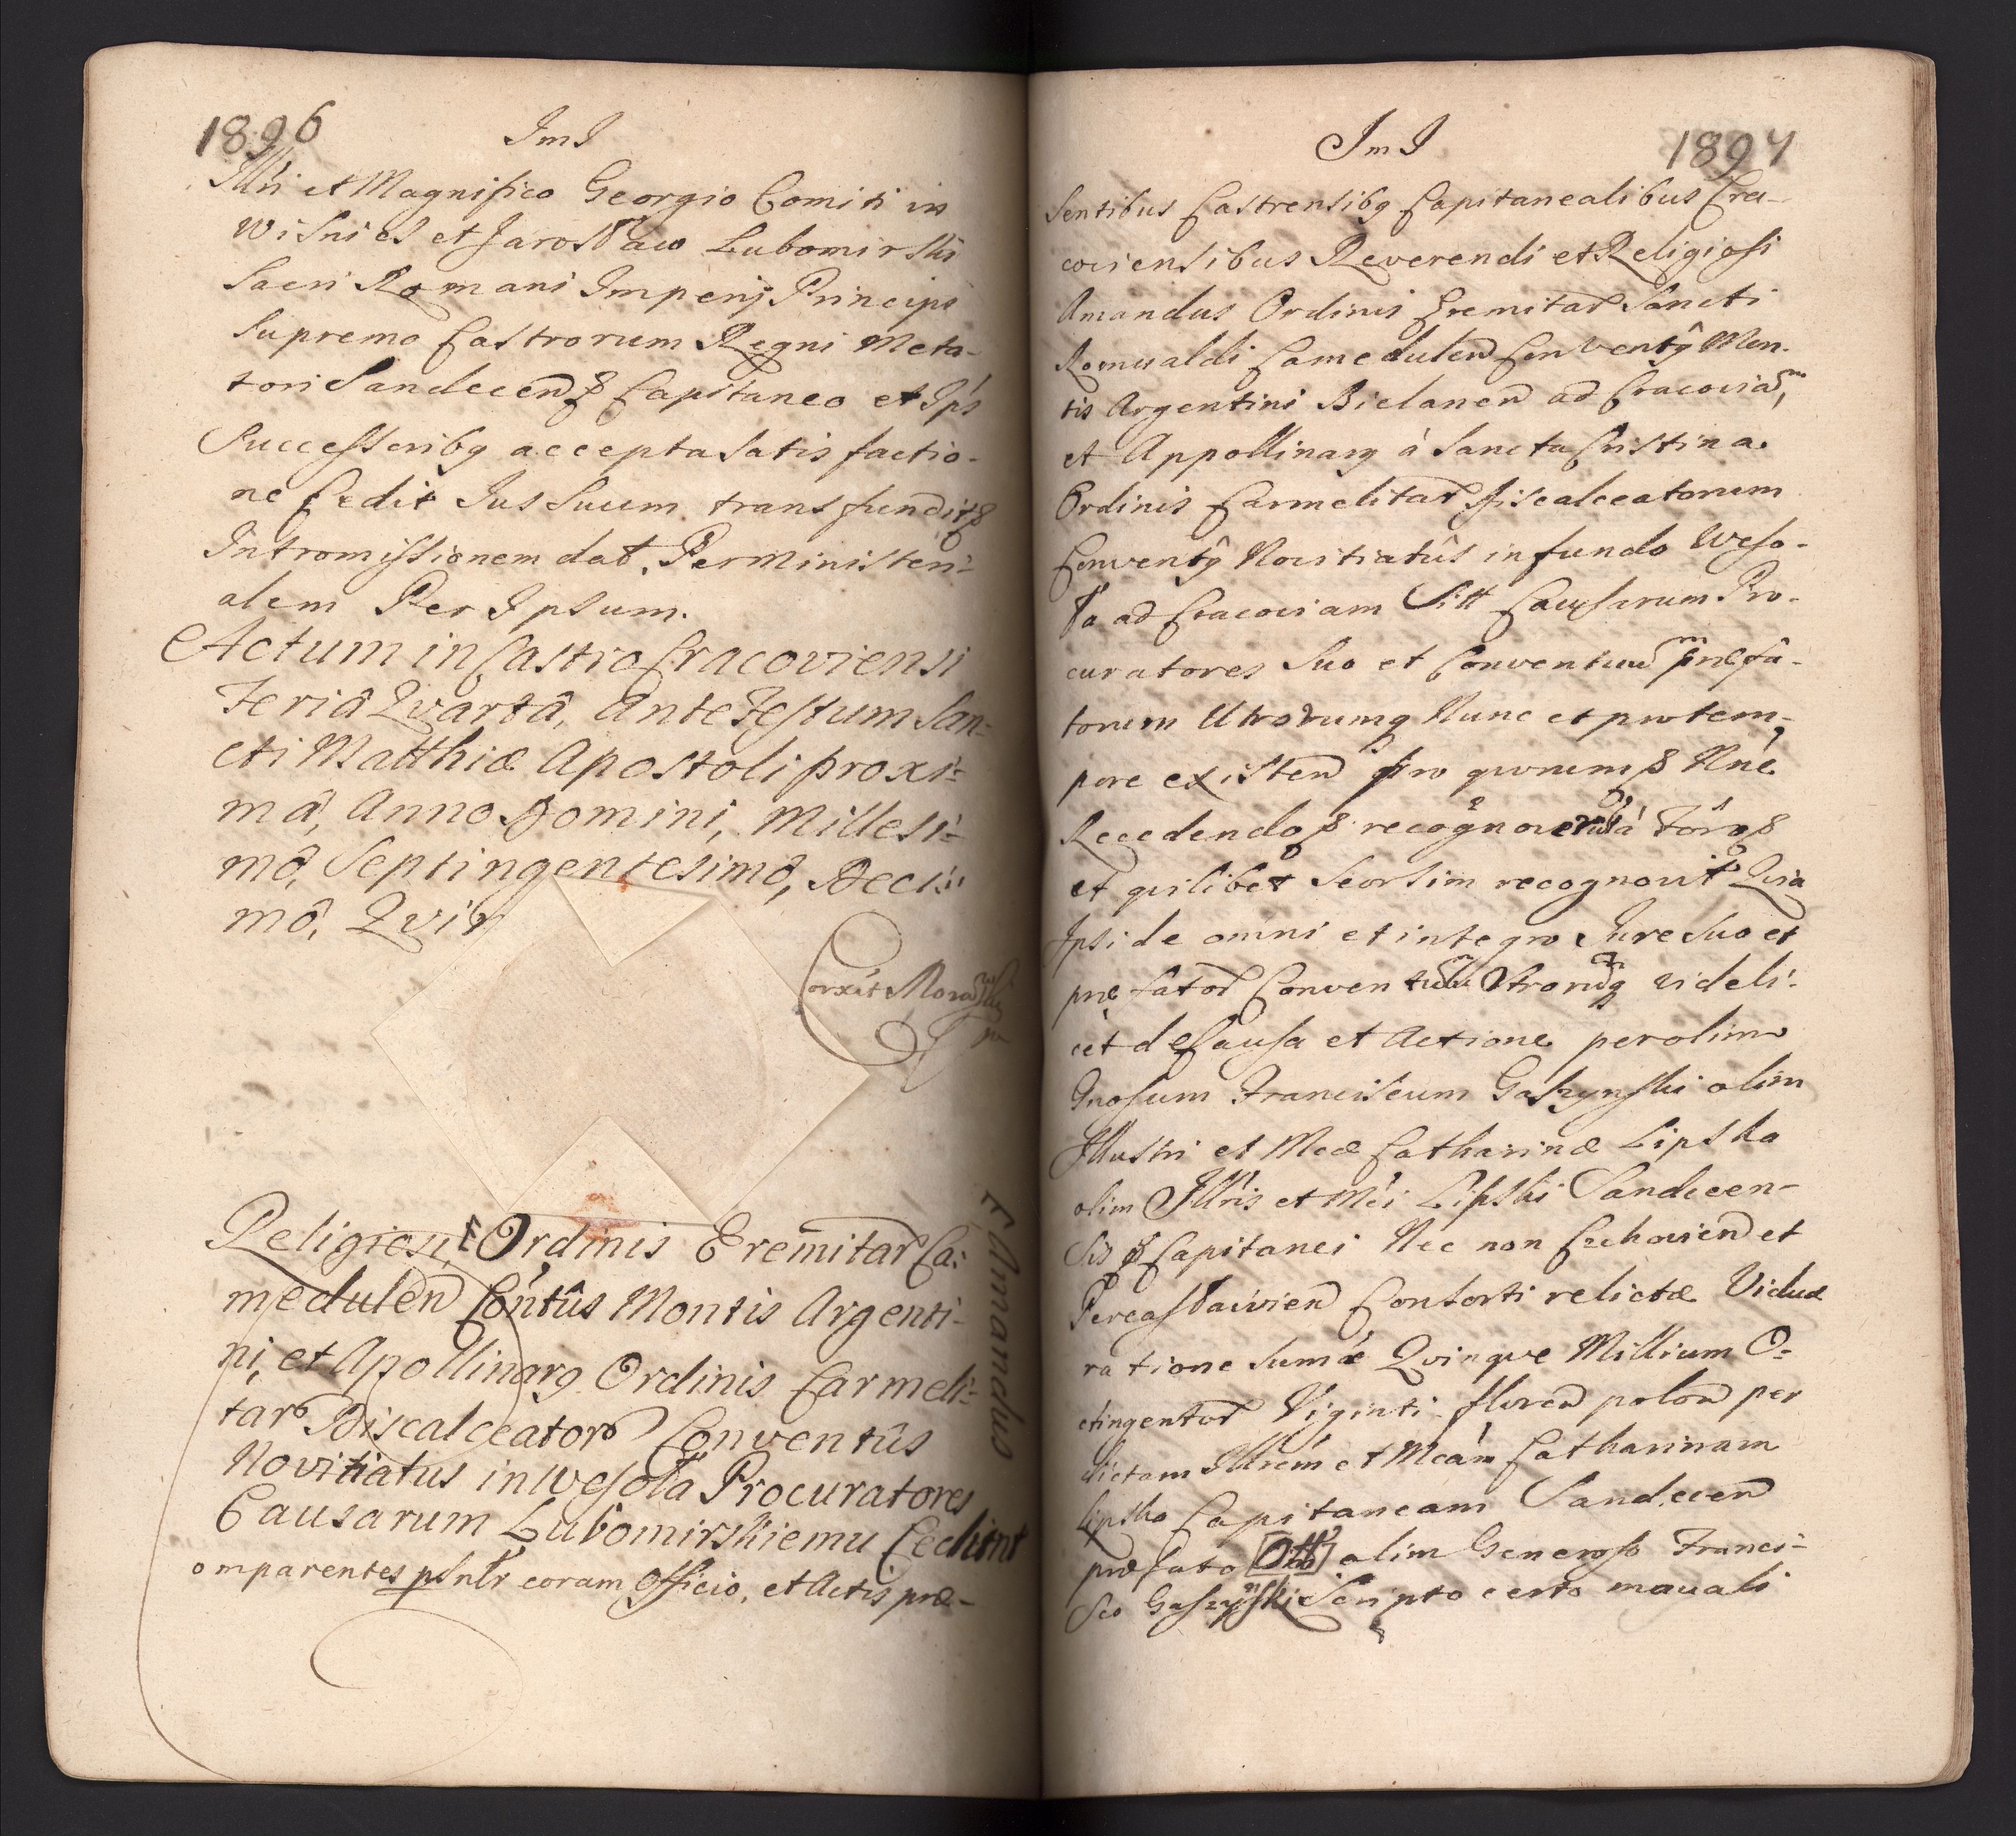 1896
JmJ
Illri et Magnifico Georgio Comiti in
Wisnies et Jarosław Lubomirski
Sacri Romani Imperij Principi
Supremo Castrorum Regni Meta-
tori Sandecen & Capitaneo et Ips
Successoribq accepta satisfactio-
ne Cedit Jus Suum transfundit &
Intromissionem dat. Per Ministeri-
alem Per Ipsum.
Actum in Castro Cracoviensi
Feriâ Qvartâ, Ante Festum San-
cti Matthiæ Apostoli proxi-
mâ, Anno Domini, Millesi-
mô, Septingentesimô, Deci-
mô, Qvin
Corxit
Religiosi, Ordinis Eremitar Ca-
medulen Contûs Montis Argenti-
ni, et Apollinarq Ordinis Carmeli-
tar Discalceator Conventûs
Novitiatus in Wesoła Procuratores
Causarum Lubomirskiemu Cedunt
Amandus
omparentes psntr coram Officio, et Actis præ-
JmJ
1897
sentibus Castrensibq Capitanealibus Cra-
coviensibus Reverendi et Religiosi
Amandus Ordinis Eremitar Sancti
Romualdi Camedulen Conventq Mon-
tis Argentini Bielanen ad Cracoviam,
et Appollinarq à Sancta Cristina
Ordinis Carmelitar Discalceatorum
Conventq Novitiatûs in fundo Weso-
ła ad Cracoviam Sitt Causarum Pro-
curatores Suo et Conventuum præfa-
torum Utrorumq Nunc et pro tem-
pore existen pro quorum & Nne
Recedendo & recognoverut à Foro &
et quilibet Seorsim recognovit Qvia
Ipsi de omni et integro Jure Suo et
præfator Conventuum Utrorumq videli-
cet de Causa et Actione per olim
Gnosum Franciscum Gaszynski olim
Illustri et Mcæ Catharinæ Lipska
olim Illris et Mci Lipski Sandecen-
sis & Capitanei Nec non Czchovien et
Pereasławien Consorti relictæ Viduæ
ratione Sumæ Qvinqve Millium O-
ctingentor Viginti floren polon per
dictam Illrem et Mcam Catharinam
Lipska Capitaneam Sandecen
præfato olim Generoso Franci-
sco Gaszynski Scripto certo manuali